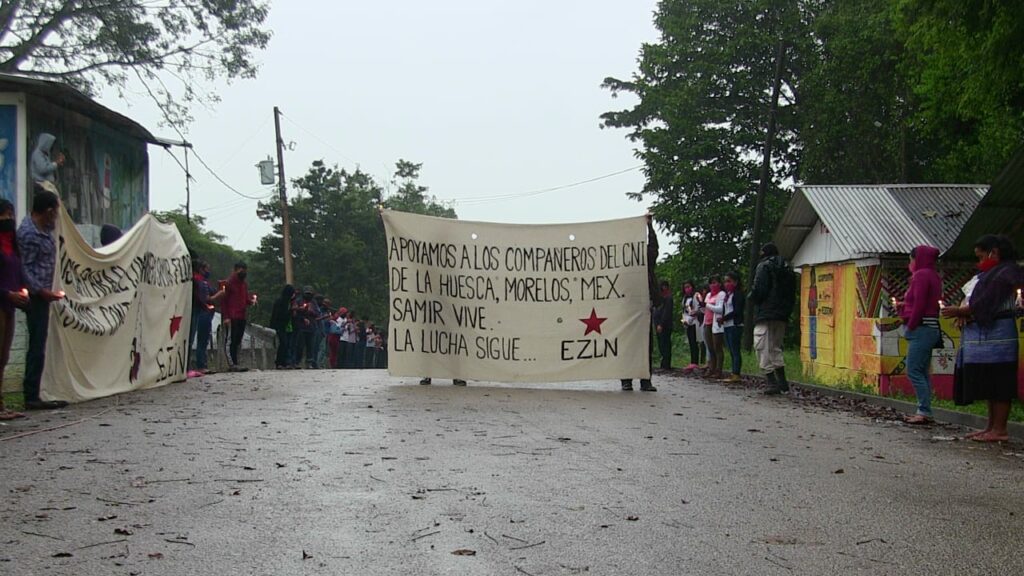 APOYAMOS A LOS COMPAÑEROS DEL CNI
DE LA HUESCA, MORELOS, MEX.
SAMIR VIVE.
LA LUCHA SIGUE... EZLN
EZLN